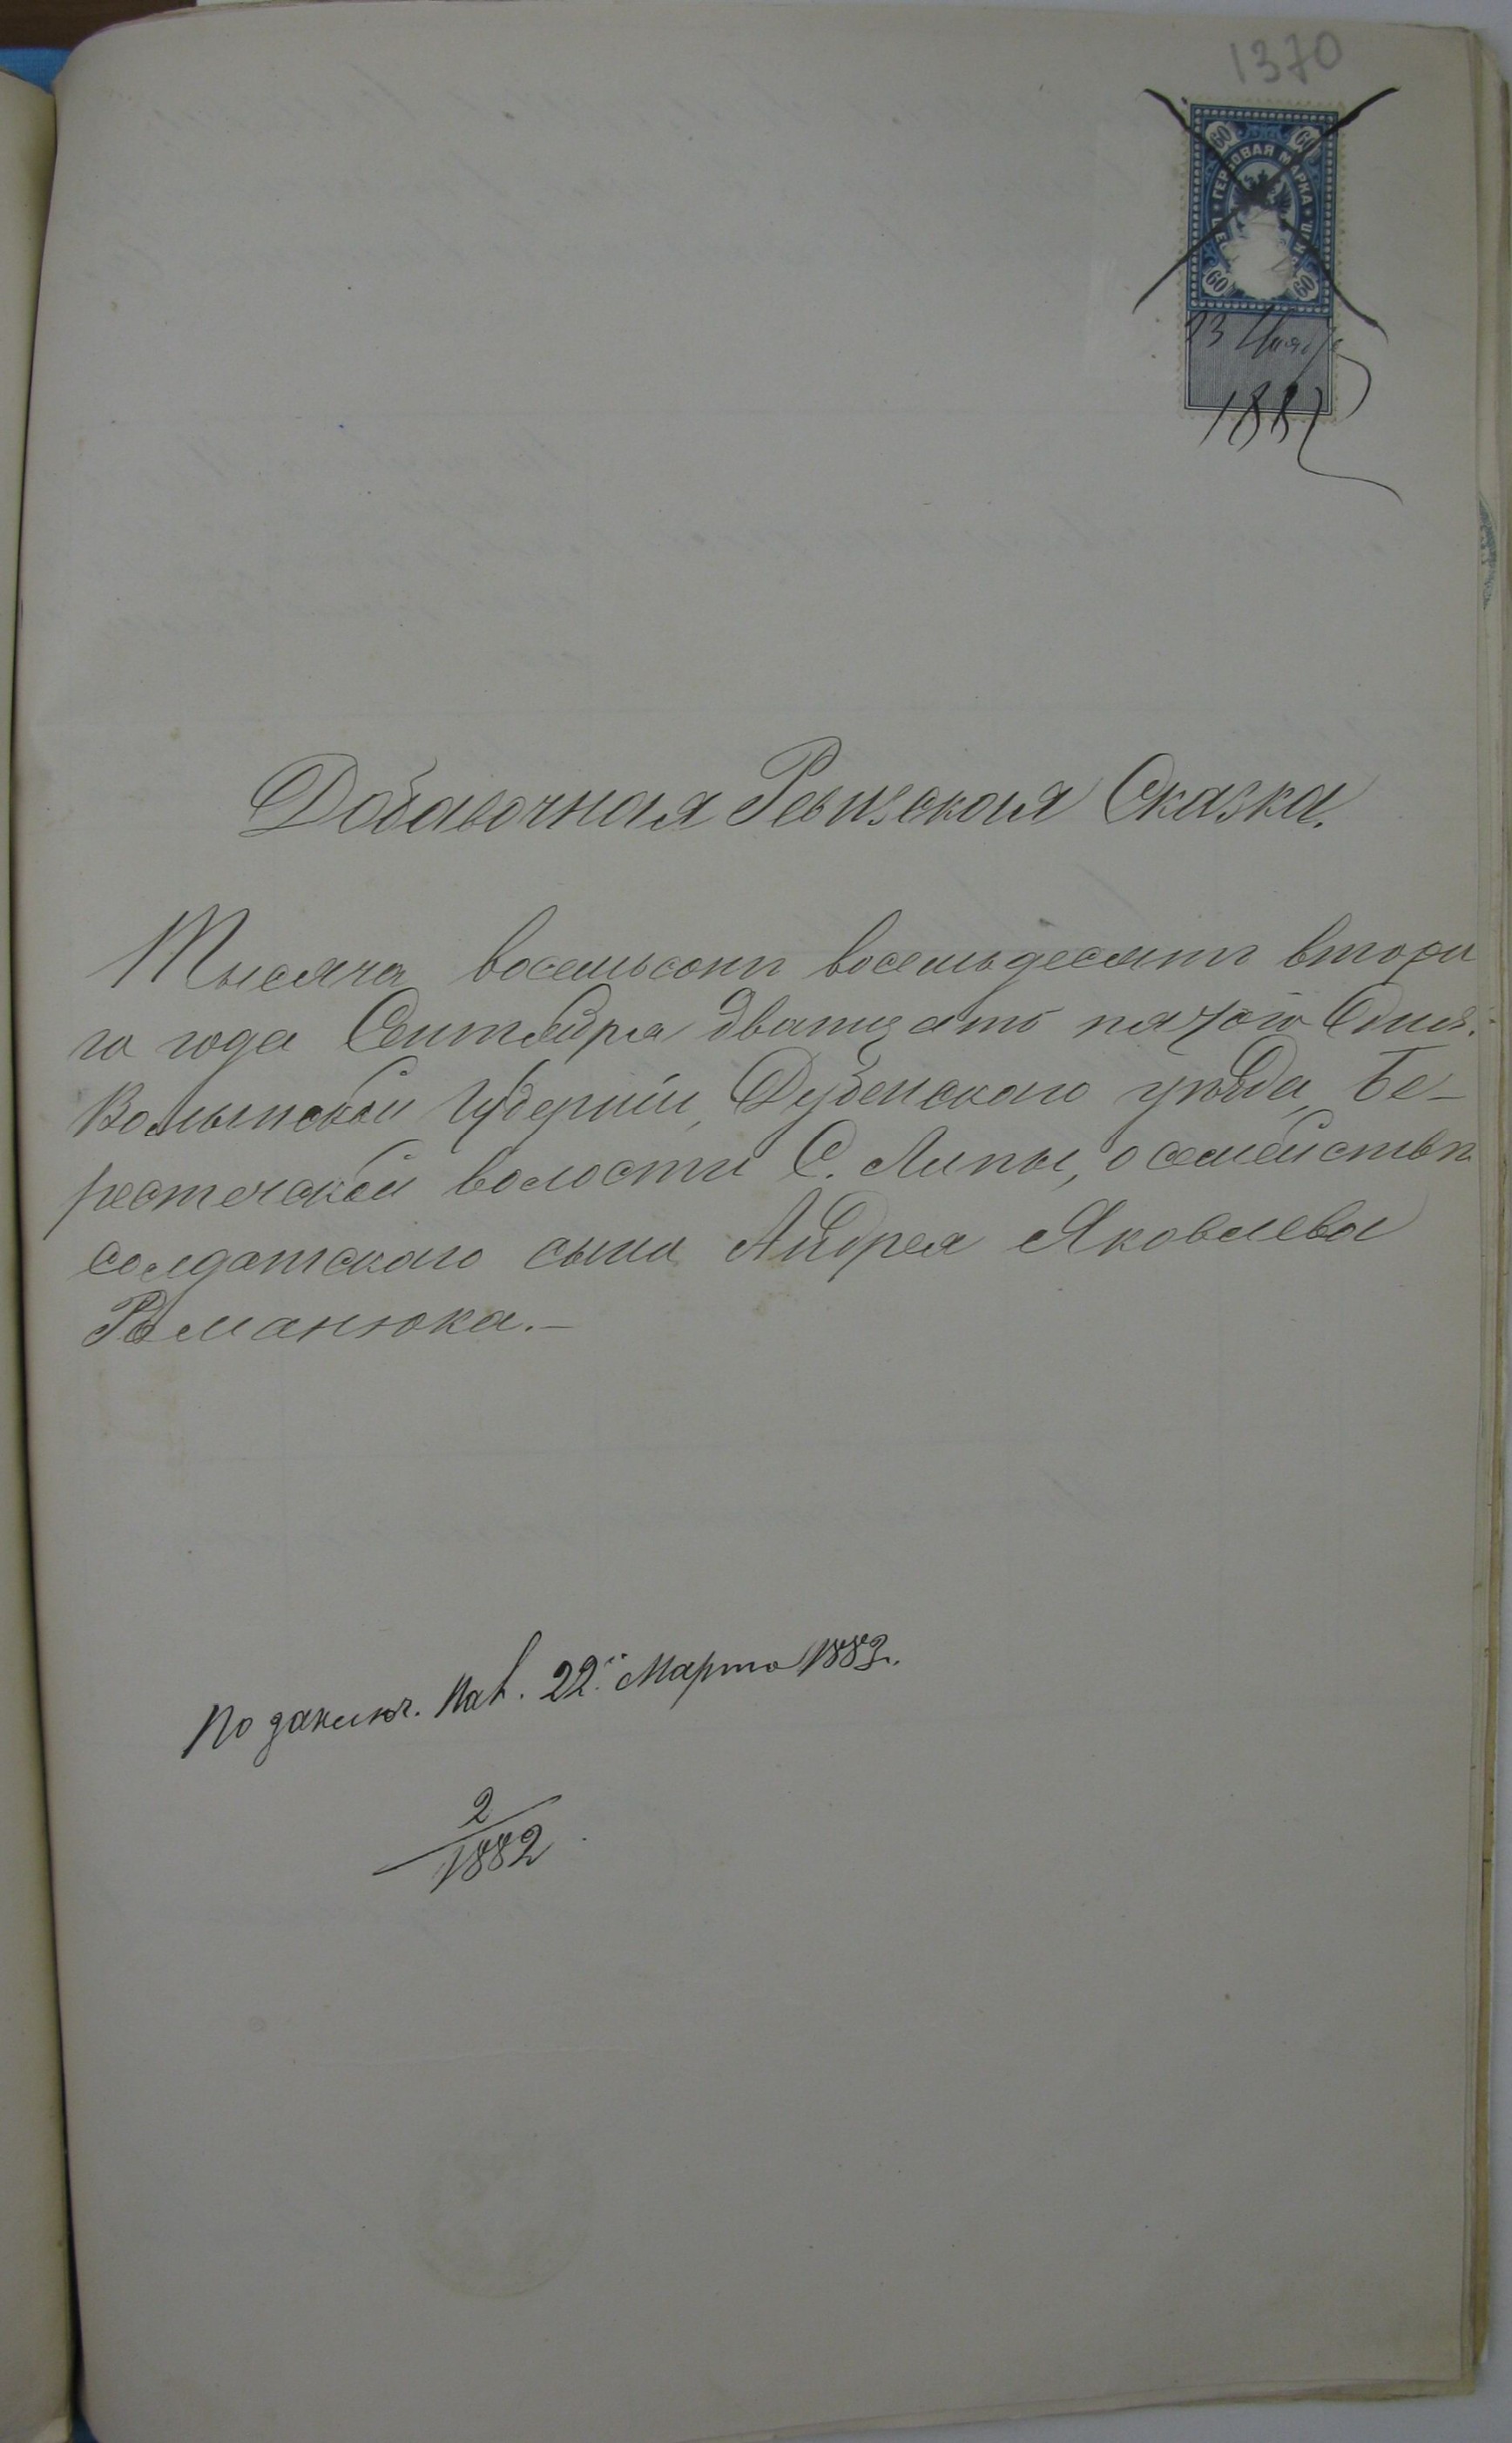 1370
60 60
ГЕРБОВАЯ МАРКА
60 60
23
1882
Добавочная Ревизская Сказка.
Тысяча восемьсотъ восемьдесятъ второ
го года Сентября дватцать пятого Дня.
Волынской Губерніи, Дубенскаго уѣзда, Бе-
рестечской волости С. Липы, о семействѣ
солдатскаго сына Андрея Яковлева
Романюка.—
По заключ. Пал. 22. Марта 1883.
2
1882